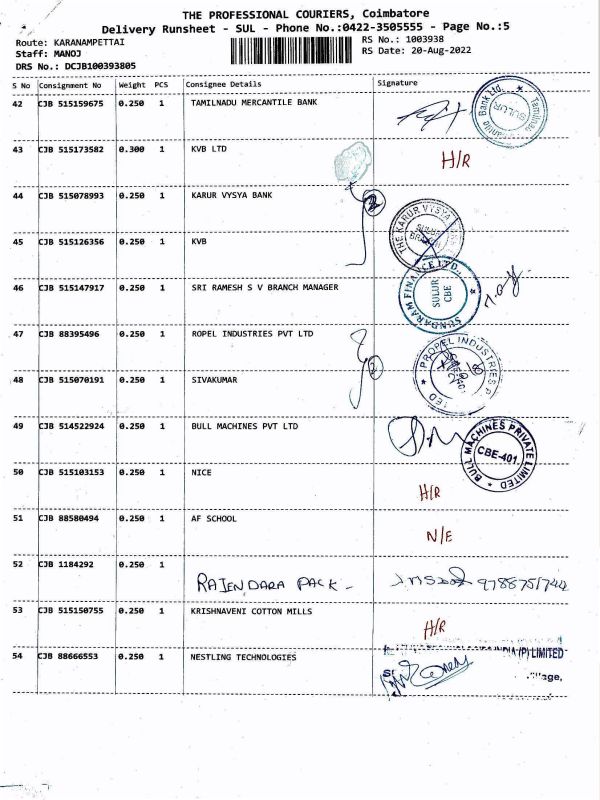 THE PROFESSIONAL COURIERS, Coimbatore
Delivery Runsheet - SUL - Phone No.:0422-3505555 - Page No.:5
Route: KARANAMPETTAI
Staff: MANOJ
DRS No.: DCJB100393805
RS No.: 1003938
RS Date: 20-Aug-2022
S No Consignment No Weight PCS Consignee Details Signature
42 CJB 515159675 0.250 1 TAMILNADU MERCANTILE BANK
Bank Ltd. SULUR
43 CJB 515173582 0.300 1 KVB LTD H/R
44 CJB 515078993 0.250 1 KARUR VYSYA BANK 2
THE KARUR VYSYA SULUR BRANCH
45 CJB 515126356 0.250 1 KVB
46 CJB 515147917 0.250 1 SRI RAMESH S V BRANCH MANAGER
SUNDARAM FINANCE LTD., SULUR CBE
47 CJB 88395496 0.250 1 ROPEL INDUSTRIES PVT LTD 2
PROPEL INDUSTRIES
48 CJB 515070191 0.250 1 SIVAKUMAR
49 CJB 514522924 0.250 1 BULL MACHINES PVT LTD
BULL MACHINES PRIVATE LIMITED CBE-401.
50 CJB 515103153 0.250 1 NICE H/R
51 CJB 88580494 0.250 1 AF SCHOOL N/E
52 CJB 1184292 0.250 1 RAJENDARA PACK -
53 CJB 515150755 0.250 1 KRISHNAVENI COTTON MILLS H/R
54 CJB 88666553 0.250 1 NESTLING TECHNOLOGIES
INDIA (P) LIMITED